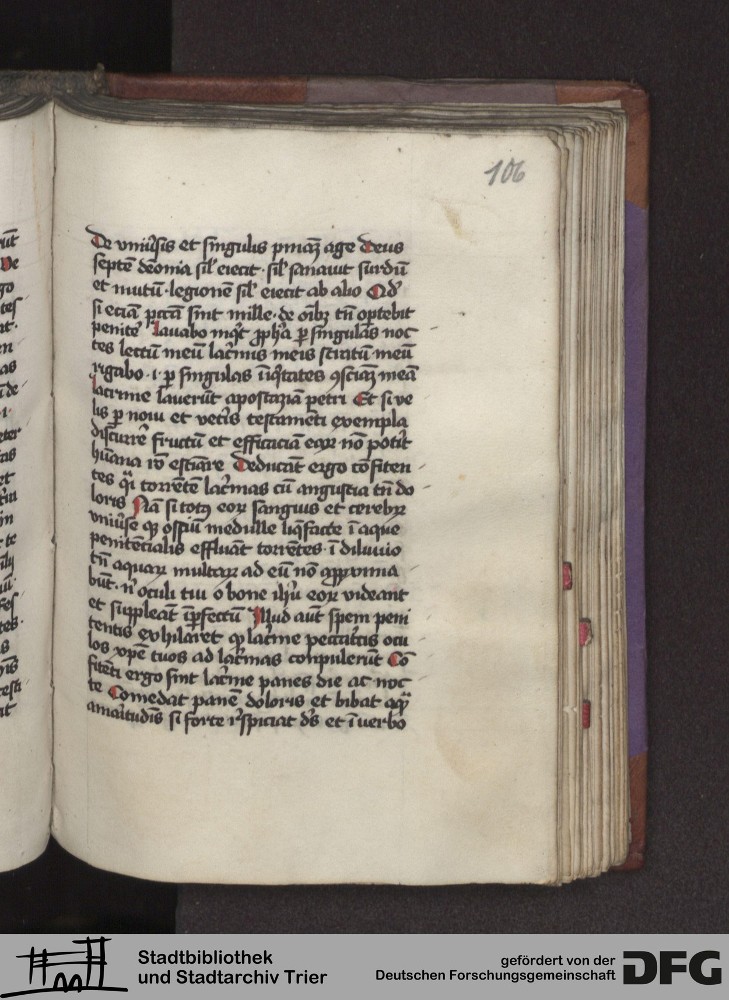 106
De vniu̾sis et singulis pnīaꝫ age Deus
septē dēonia sil̾ eiecit · sil̾ sanauit surdū
et mutū · legionē sil̾ eiecit ab alio Qd̾
si eciā pctā sint mille · de oīb₉ tn̄ optebit
penite̾ Lauabo inqͥt ꝓph̾a ꝑ singulas noc
tes lectū meū lac̾mis meis stratū meū
rigabo · i · ꝑ singulas īiqͥtates ꝯsciāꝫ meā
lacrime lauerūt apostazīā petri Et si ve
lis ꝑ noui et vet̾is testamēti exempla
discurre̾ fructū et efficaciā eoꝝ nō potit̾
hūana rō estiāre Deducāt ergo cōfiten
tes qͥ torrētē lac̾mas cū angustia tn̄ do
loris Nā si totꝰ eoꝝ sanguis et cerebꝝ
vniu̾se qꝫ ossiū medulle liq̄facte ī aque
penitēcialis effluāt torrētes · ī diluuio
tn̄ aquaꝝ multaꝝ ad eū nō aꝓxima
būt · n̾ oculi tui o bone ih̄u eoꝝ videant
et suppleāt īꝑfectū Illud aūt spem peni
tentis exhilaret ꝙ lac̾me peccat̾cis ocu
los xp̄e tuos ad lac̾mas conpulerūt Cō
fitēti ergo sint lac̾me panes die ac noc
te Comedat panē doloris et bibat aqͣꝫ
amaͥtudīs si forte r̾spiciat dꝰs et ī verbo
Stadtbibliothek
und Stadtarchiv Trier
gefördert von der
Deutschen Forschungsgemeinschaft
DFG